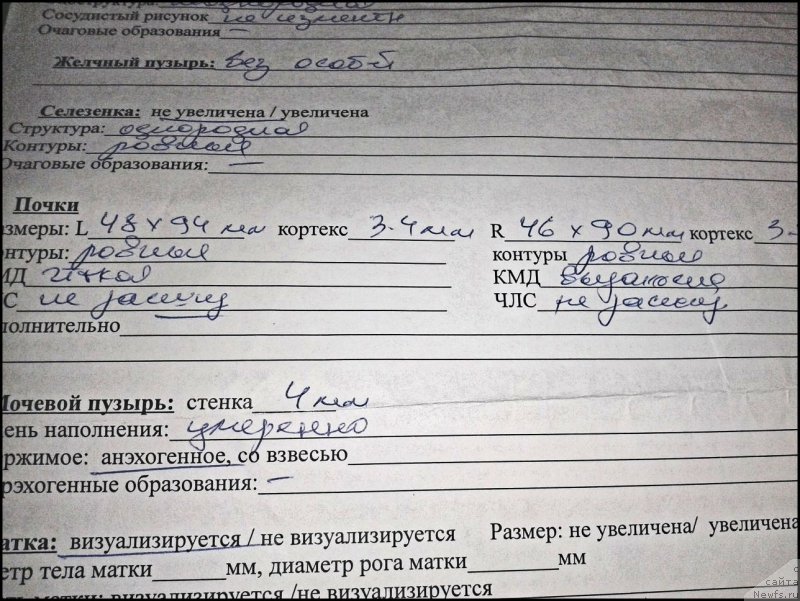 Сосудистый рисунок не изменен
Очаговые образования —
Желчный пузырь: без особ-й
Селезенка: не увеличена / увеличена
Структура: однородная
Контуры: ровные
Очаговые образования: —
Почки
азмеры: L 48 x 94 мм кортекс 3-4 мм R 46 x 90 мм кортекс 3-
онтуры: ровные контуры ровные
МД четкая КМД
ЧЛС не расшир ЧЛС не расшир
полнительно
Мочевой пузырь: стенка 4 мм
ень наполнения: умеренно
ржимое: анэхогенное, со взвесью
рэхогенные образования: —
атка: визуализируется / не визуализируется Размер: не увеличена/ увеличена
етр тела матки мм, диаметр рога матки мм
матки: визуализируется /не визуализируется
с сайта
Newfs.ru